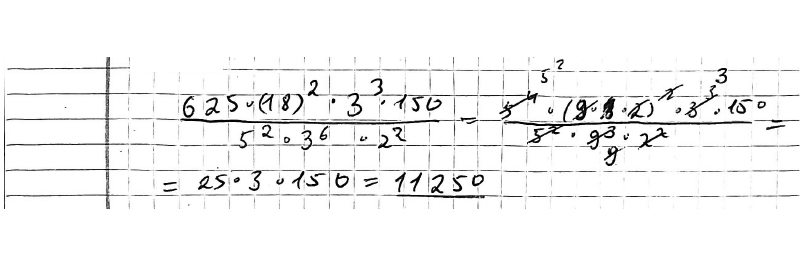 5²
625·(18)²·3³·150 / 5²·3⁶·2² = 5⁴·(9·2)²·3³·150 / 5²·9³·2² =
3
9
= 25·3·150 = 11250